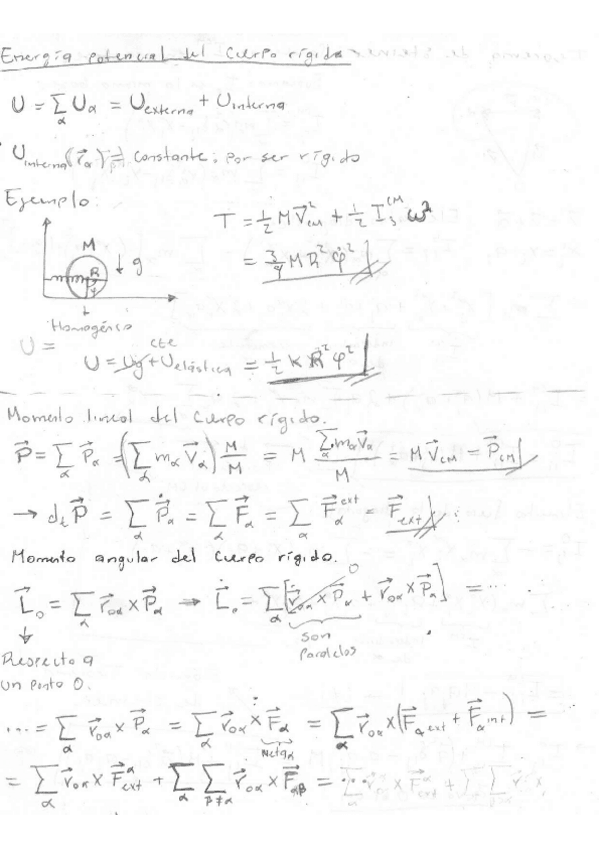 Energía potencial del Cuerpo rígido
U = Σ_α U_α = U_externa + U_interna
U_interna(r⃗_α) = constante; por ser rígido
Ejemplo:
T = 1/2 M V⃗²_CM + 1/2 I_3^CM ω²
M
R
g
φ
= 3/4 M R² φ̇²
Homogéneo
U =
cte
U = U_g + U_elástica = 1/2 K R² φ²
Momento lineal del Cuerpo rígido.
P⃗ = Σ_α P⃗_α = (Σ_α m_α V⃗_α) M/M = M (Σ_α m_α V⃗_α)/M = M V⃗_CM = P⃗_CM
→ d_t P⃗ = Σ_α Ṗ⃗_α = Σ_α F⃗_α = Σ_α F⃗_α^ext = F⃗_ext
Momento angular del Cuerpo rígido.
L⃗_0 = Σ_α r⃗_0α × P⃗_α → L̇⃗_0 = Σ_α [ṙ⃗_0α × P⃗_α + r⃗_0α × Ṗ⃗_α] = ...
0
son
paralelos
Respecto a
un punto O.
... = Σ_α r⃗_0α × Ṗ⃗_α = Σ_α r⃗_0α × F⃗_α = Σ_α r⃗_0α × (F⃗_α ext + F⃗_α int) =
Neta
= Σ_α r⃗_0α × F⃗_ext^α + Σ_α Σ_β≠α r⃗_0α × F⃗_αβ =